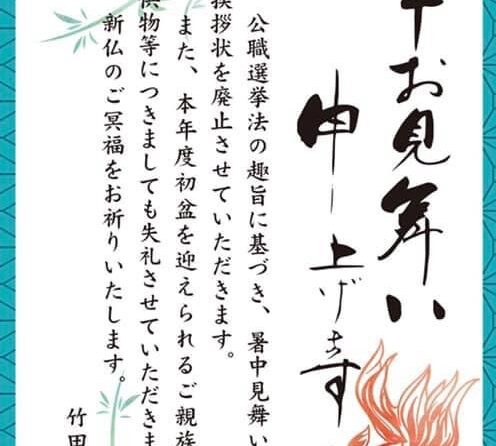 中お見舞い
申し上げます
公職選挙法の趣旨に基づき、暑中見舞い
挨拶状を廃止させていただきます。
また、本年度初盆を迎えられるご親族
供物等につきましても失礼させていただきま
新仏のご冥福をお祈りいたします。
竹田